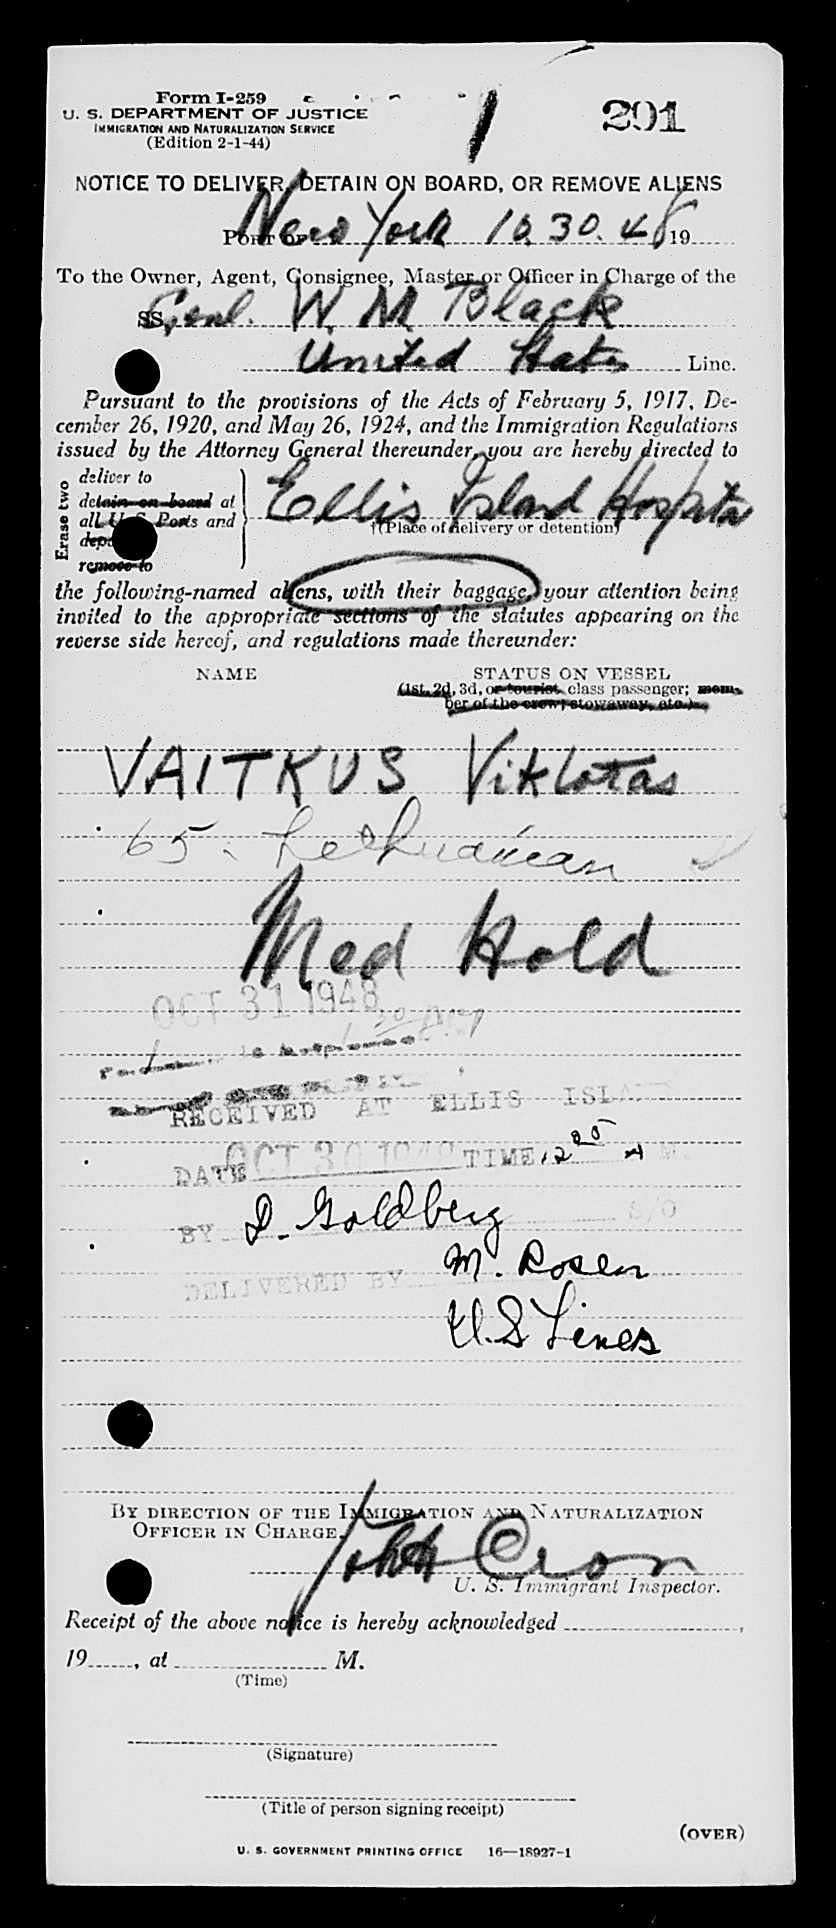 Form I-259
U. S. DEPARTMENT OF JUSTICE
IMMIGRATION AND NATURALIZATION SERVICE
(Edition 2-1-44)
291
NOTICE TO DELIVER, DETAIN ON BOARD, OR REMOVE ALIENS
PORT OF New York 10.30.48 19
To the Owner, Agent, Consignee, Master or Officer in Charge of the
SS. Genl. W. M. Black
United States Line.
Pursuant to the provisions of the Acts of February 5, 1917, De-
cember 26, 1920, and May 26, 1924, and the Immigration Regulations
issued by the Attorney General thereunder, you are hereby directed to
Erase two
deliver to
detain on board at
all U. S. Ports and
remove to
Ellis Island Hospital
†(Place of delivery or detention)
the following-named aliens, with their baggage, your attention being
invited to the appropriate sections of the statutes appearing on the
reverse side hereof, and regulations made thereunder:
NAME STATUS ON VESSEL
(1st, 2d, 3d, or tourist class passenger; mem-
ber of the crew; stowaway, etc.)
VAITKUS Viklotas
65. Lethuanian
Med Hold
OCT 31 1948
RECEIVED AT ELLIS
DATE OCT 30 1948 TIME 12 05 A M.
BY D. Goldberg S/O
M. Rosen
DELIVERED BY
U.S Lines
BY DIRECTION OF THE IMMIGRATION AND NATURALIZATION
OFFICER IN CHARGE.
John Cron
U. S. Immigrant Inspector.
Receipt of the above notice is hereby acknowledged ,
19 , at M.
(Time)
(Signature)
(Title of person signing receipt)
(OVER)
U. S. GOVERNMENT PRINTING OFFICE 16—18927-1